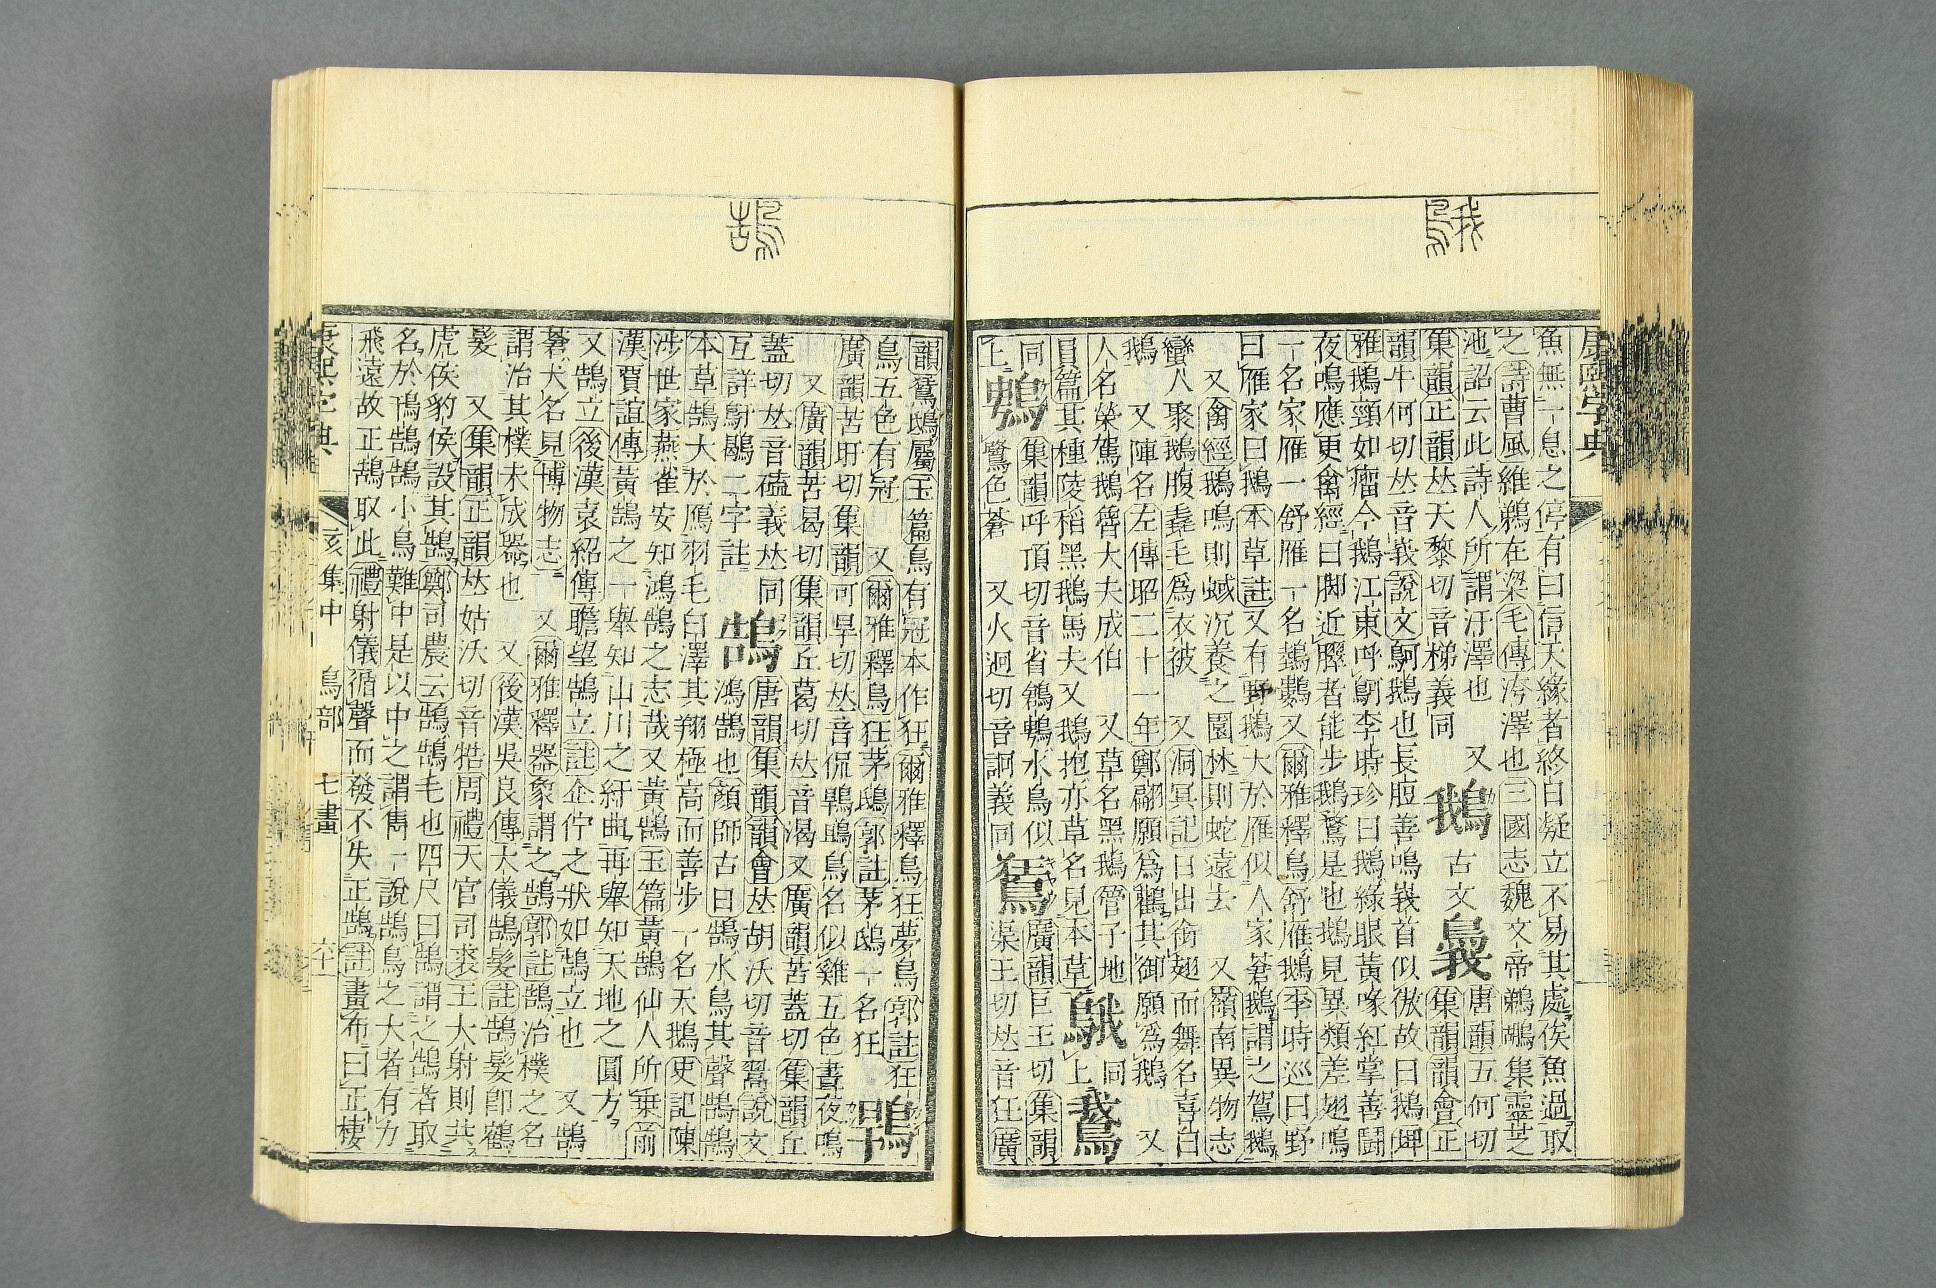 䳘
康熙字典
魚無一息之停有曰信天緣者終日凝立不易其處俟魚過取
之詩曹風維鵜在梁毛傳洿澤也三國志魏文帝鵜鶘集靈芝
池詔云此詩人所謂汙澤也 又唐韻五何切
集韻正韻𠀤天黎切音梯義同 鵝 古文䳗 集韻韻會正
韻牛何切𠀤音義說文䳗鵝也長脰善鳴峩首似傲故曰鵝埤
雅鵝頸如瘤今鵝江東呼䳗李時珍曰鵝綠眼黃喙紅掌善鬭
夜鳴應更禽經曰脚近臎者能步鵝鶩是也鵝見異類差翅鳴
一名家雁一舒雁一名鵱鷜又爾雅釋鳥舒雁鵝李時巡曰野
曰雁家曰鵝本草註又有野鵝大於雁似人家蒼鵝謂之駕鵝
又禽經鵝鳴則蜮沉養之園林則蛇遠去 又嶺南異物志
蠻人聚鵝腹毳毛爲衣被 又洞冥記日出銜翅而舞名喜日
鵝 又陣名左傳昭二十一年鄭翩願爲鸛其御願爲鵝 又
人名榮駕鵝魯大夫成伯 又草名黑鵝管子地
員篇其種陵稻黑鵝馬夫又鵝抱亦草名見本草 䳘 同上 䳗
同上 䳙 集韻呼頂切音省鵛䳙水鳥似
鷺色蒼 又火迥切音詗義同 鵟 廣韻巨王切集韻
渠王切𠀤音狂廣
鵠
韻鵟鴟屬玉篇鳥有冠本作狂爾雅釋鳥狂夢鳥郭註狂
鳥五色有冠 又爾雅釋鳥狂茅鴟郭註茅鴟一名狂 鶡
廣韻苦旰切集韻可旱切𠀤音侃鶡鴠鳥名似雞五色晝夜鳴
又廣韻苦曷切集韻丘葛切𠀤音渴又廣韻苦蓋切集韻丘
蓋切𠀤音磕義𠀤同 鵠 唐韻集韻韻會𠀤胡沃切音翯說文
互詳鴚鶡二字註 鴻鵠也顏師古曰鵠水鳥其聲鵠鵠
本草鵠大於鴈羽毛白澤其翔極高而善步一名天鵝史記陳
涉世家燕雀安知鴻鵠之志哉又黃鵠玉篇黃鵠仙人所乗爾
漢賈誼傳黃鵠之一舉知山川之紆曲再舉知天地之圓方
又鵠立後漢袁紹傳瞻望鵠立註企佇之狀如鵠立也 又鵠
蒼犬名見博物志 又爾雅釋器象謂之鵠郭註鵠治樸之名
謂治其樸未成器也 又後漢吳良傳大儀鵠髮註鵠髮卽鶴
髮 又集韻正韻𠀤姑沃切音牿周禮天官司裘王大射則共
虎侯豹侯設其鵠鄭司農云鵠鵠毛也四尺曰鵠謂之鵠者取
名於鳱鵠鵠小鳥難中是以中之謂雋一說鵠鳥之大者有力
飛遠故正鵠取此禮射儀循聲而發不失正鵠註畫布曰正棲
康熙字典 亥集中 鳥部 七畫 六十